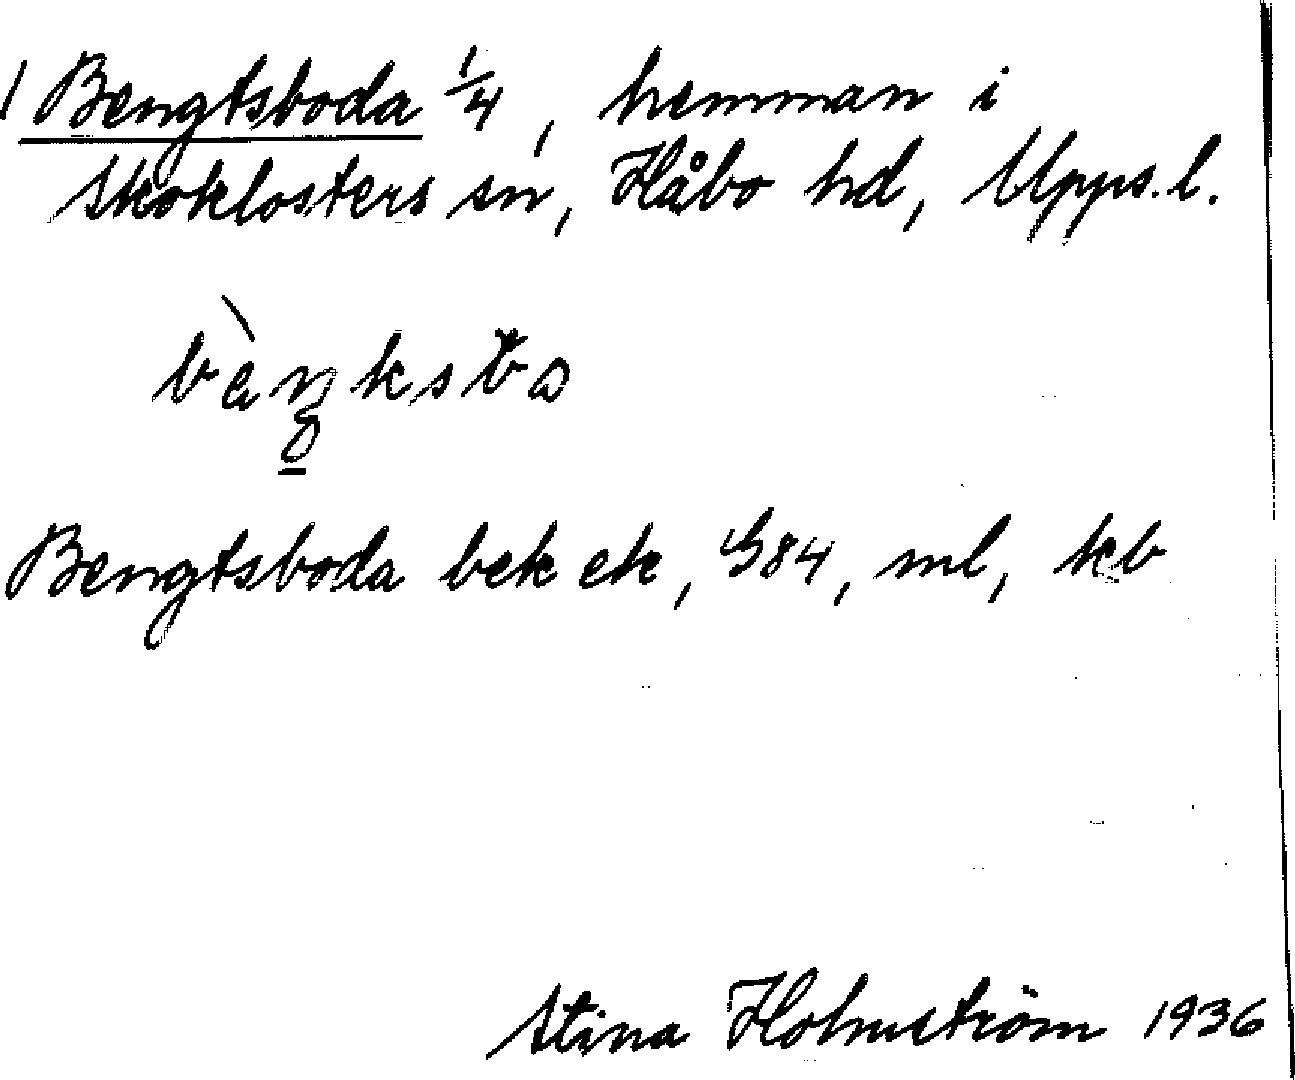 1 Bengtsboda 1/4, hemman i
Skoklosters sn, Håbo hd, Upps.l.
Bengtsboda bek ek, G84, ml, kb
Stina Holmström 1936